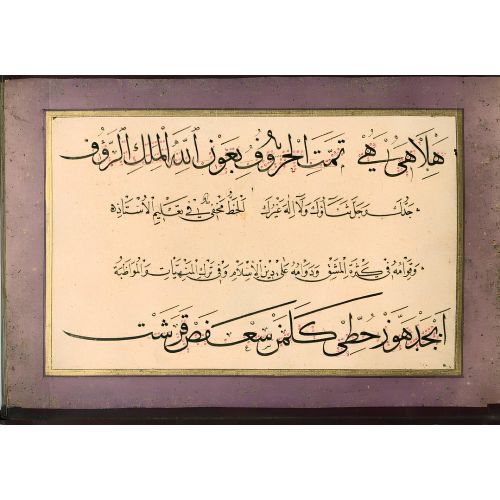 هلا هى هي تمت الحروف بعون الله الملك الرؤف
جدك وجل ثناؤك ولا اله غيرك الخط مخفي في تعليم الاستاذ
وقوامه في كثرة المشق ودوامه على دين الاسلام وفي ترك المنهيات والمواظبة
ابجد هوز حطى كلمن سعفص قرشت